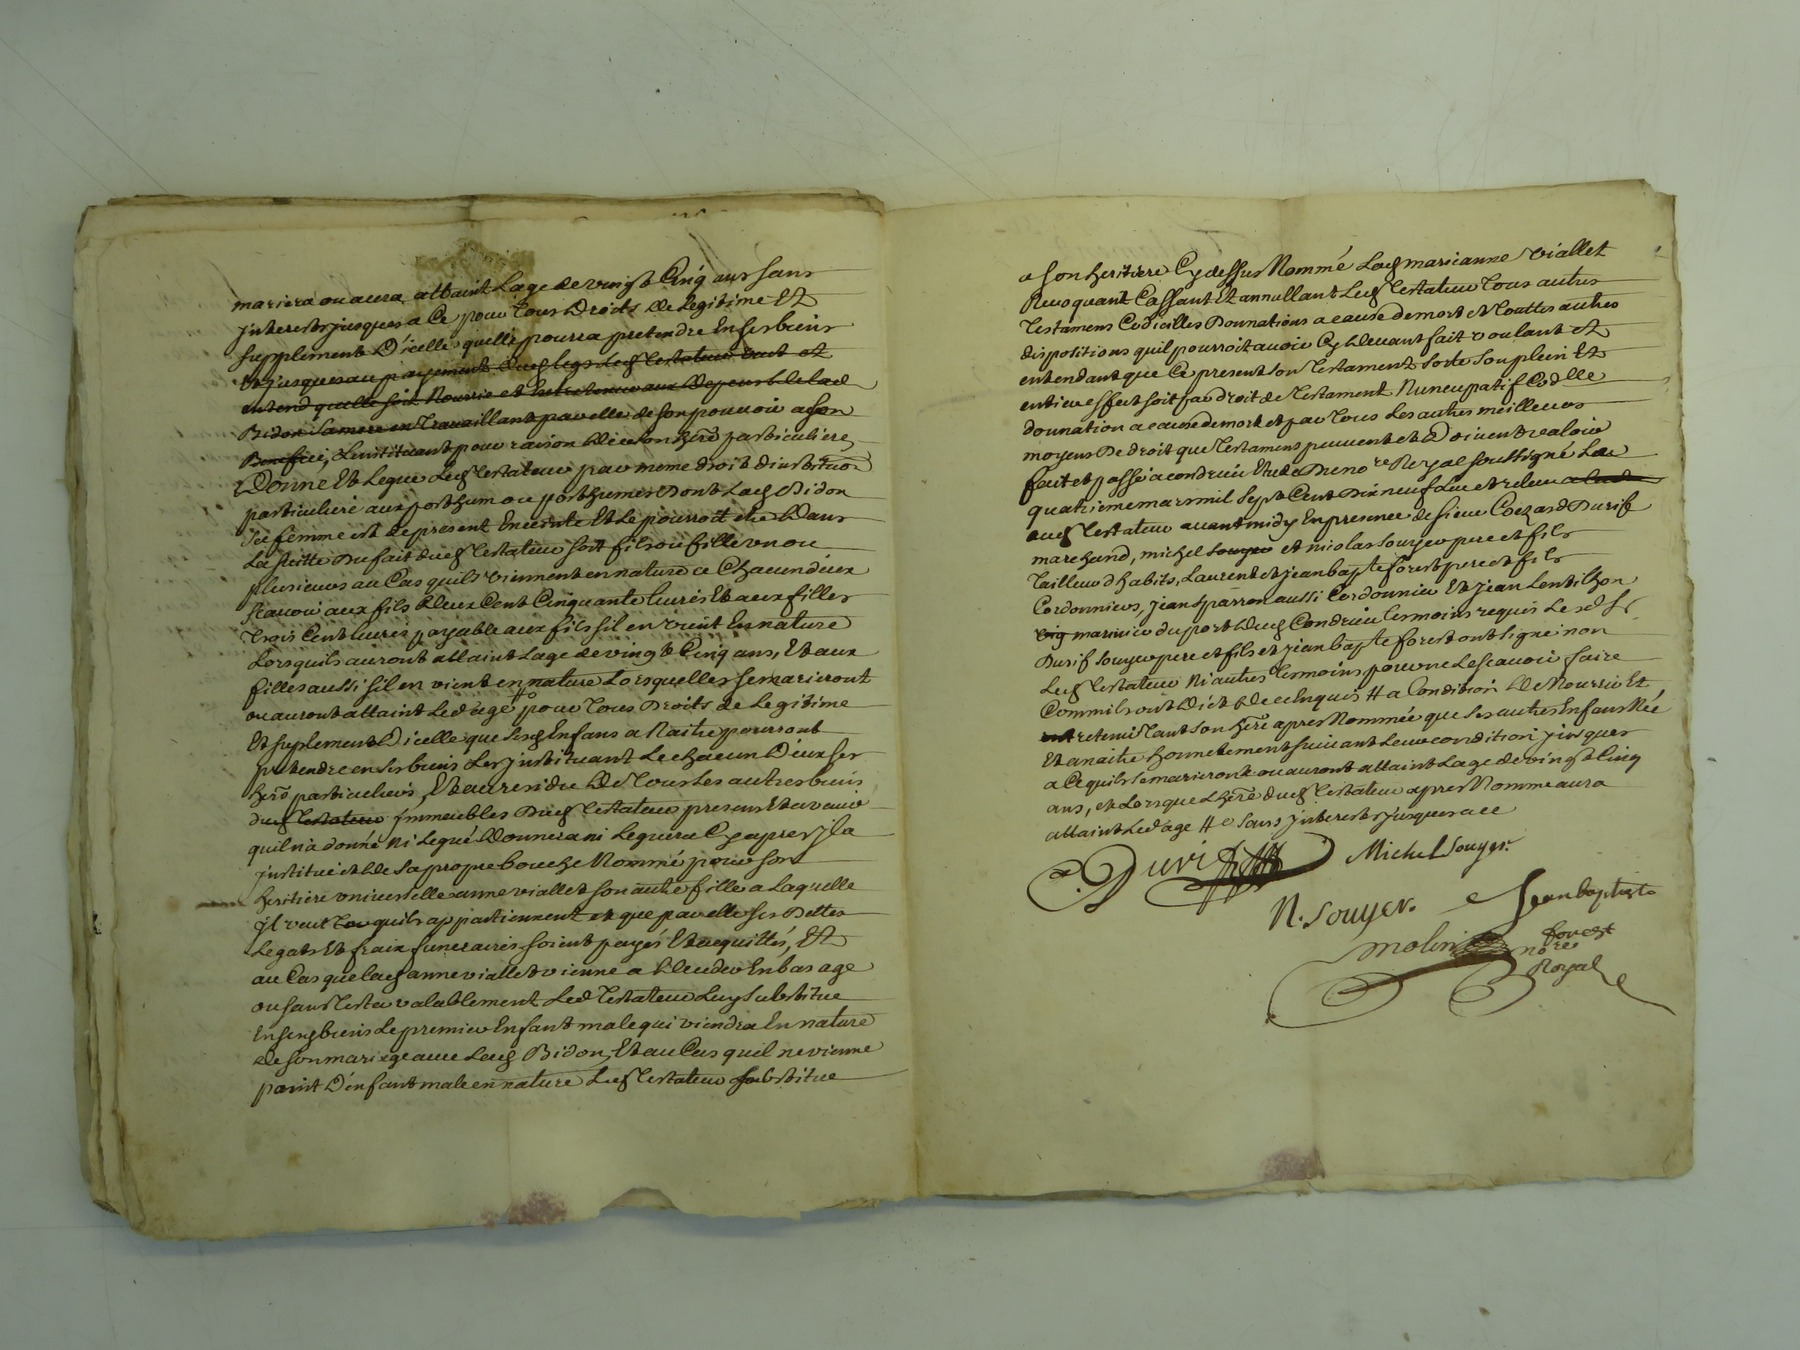 mariera ou aura attaint Lage de vingt Cinq ans sans
jnterests jusques a Ce pour Tous Droits de Legitime Et
supplement D'icelle quelle pourra pretendre En ses biens
Et jusques au payement dud legs Led Testateur veut et
entend quelle soit Nourrie et Entretenue aux Depens de lad
Bidon Sa mere en Travaillant par elle de son pouvoir a son
Benefice, Linstituant pour raison de ce son here particuliere,
Donne Et Legue Led Testateur par meme droit dinstituon
particuliere aux posthum ou posthumes Dont Lad Bidon
sa femme est de present Enceinte Et Le pourroit etre Dans
La suitte Du fait dud Testateur soit fils ou fille un ou
plusieurs au Cas quils viennent en nature a Chacun deux
scavoir aux fils Deux Cent Cinquante livres Et aux filles
Trois Cent livres payable aux fils sil en vient En nature
Lorsquils auront attaint Lage de vingt Cinq ans, Et aux
filles aussi sil en vient en nature Lorsquelles se marieront
ou auront attaint Led age # pour Tous Droits de Legitime
Et suplement Dicelle que Sesd Enfans a Naitre pourront
pretendre en ses biens Les jnstituant Le chacun Deux ses
hers particuliers, Et au residu De Tous Les autres biens
dud Testateur immeubles Dud Testateur presens Et avenir
quil n'a donné Ni Legué Donnera ni Leguera Cy apres jl a
justitué et De Sa propre bouche Nommé pour son
heritiere universelle anne viallet son autre fille a Laquelle
jl veut Tou quils appartiennent et que par elle ses Dettes
Legats Et fraix funeraires soient payés Et acquittés, Et
au Cas que lad anne viallet vienne a Deceder En bas age
ou sans Tester valablement Led Testateur Luy Substitue
En sesd biens Le premier Enfant male qui viendra En nature
de son mariage avec Lad Bidon, Et au Cas quil ne vienne
point D'enfant male en nature Led Testateur substitue
a son heritiere Cy dessus Nommé Lad marianne viallet
Revoquant Cassant Et annullant Led Testateur Tous autres
Testamens Codicilles Donnations a cause de mort et Touttes autres
dispositions quil pourroit avoir Cy Devant fait voulant et
entendant que Ce present son Testament sorte son plein Et
entier effect soit par droit de Testament Nuncupatif Codlle
donnation a cause de mort et par Tous Les autres meilleurs
moyens De droit que Testamens peuvent et Doivent valoir
fait et passé a condrieu Etude Du nore Royal soussigné Le
quatrieme mars mil Sept Cent Dix neuf Lu et relu
aud Testateur avant midy En presence de sieur Durif
marchand, michel souyer et nicolas souyer pere et fils
Tailleur d habits, Laurent et jean baptte forest pere et fils
Cordonniers, jean sparron aussi Cordonnier Et jean Lentilhon
marinier du port Dud Condrieu temoins requis Lesd Srs
Durif souyer pere et fils et jean bapte forest ont signé non
Led Testateur Ni autres Temoins pour ne Le scavoir faire
Comme ils ont Dict De ce Enquis # a Condition De Nourrir Et
entretenir Tant son here apres Nommée que ses autres Enfans Née
Et a naitre honnetement suivant Leur condition jusques
a Ce quils se marieront ou auront attaint Lage de vingt Cinq
ans, et Lorsque L here dud Testateur apres Nomme aura
attaint Led age # Sans jnterests jusques a ce
Durif Michel Souyer
N. Souyer. Jean baptiste
forest
molin nore
Royal